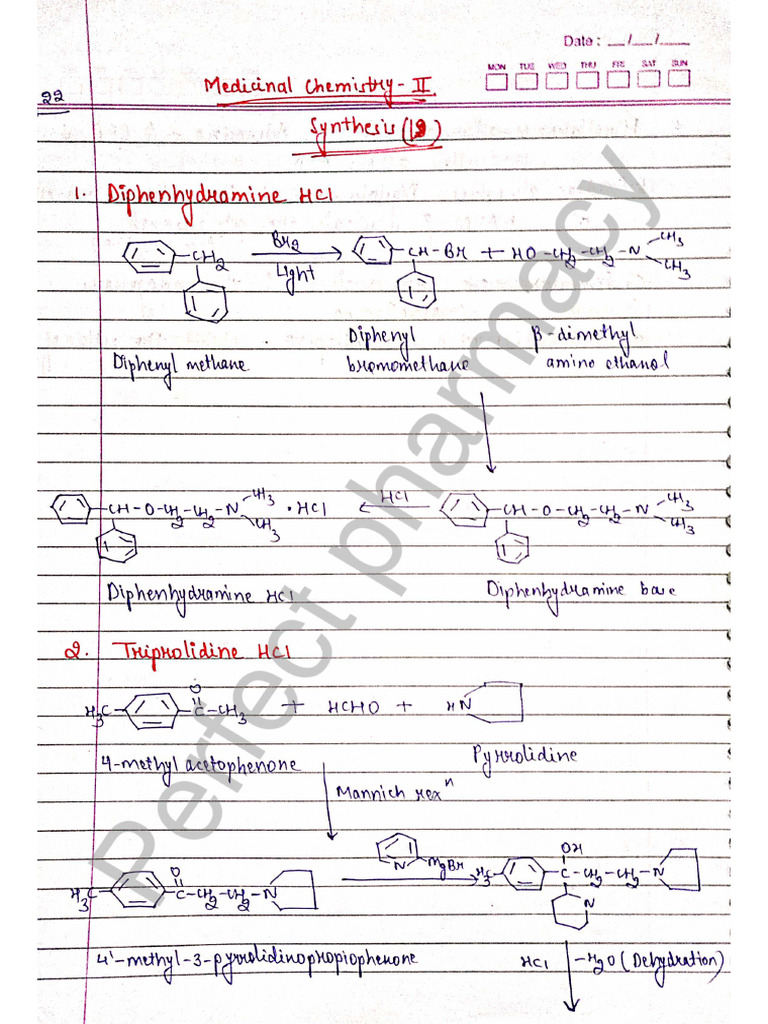 Date : __/__/__
MON TUE WED THU FRI SAT SUN
22
Medicinal Chemistry - II
Synthesis (19)
1. Diphenhydramine HCl
-CH2 Br2 Light -CH-Br + HO-CH2-CH2-N CH3 CH3
Diphenyl methane
Diphenyl bromomethane
β-dimethyl amino ethanol
-CH-O-CH2-CH2-N CH3 CH3 • HCl
HCl
-CH-O-CH2-CH2-N CH3 CH3
Diphenhydramine HCl
Diphenhydramine base
2. Triprolidine HCl
H3C- O -C-CH3 + HCHO + HN
4-methyl acetophenone
Pyrrolidine
Mannich rexn
H3C- O -C-CH2-CH2-N
N MgBr
H3C- OH -C-CH2-CH2-N
N
4'-methyl-3-pyrrolidinopropiophenone
HCl -H2O (Dehydration)
Perfect pharmacy